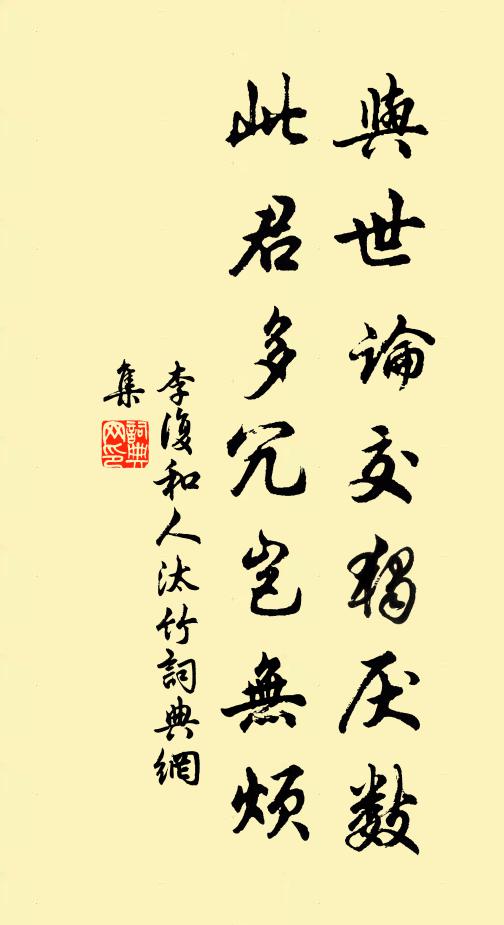 與世論交獨厌數
此君多冗豈無煩
李復和人汰竹詞典網
集
詞典网印